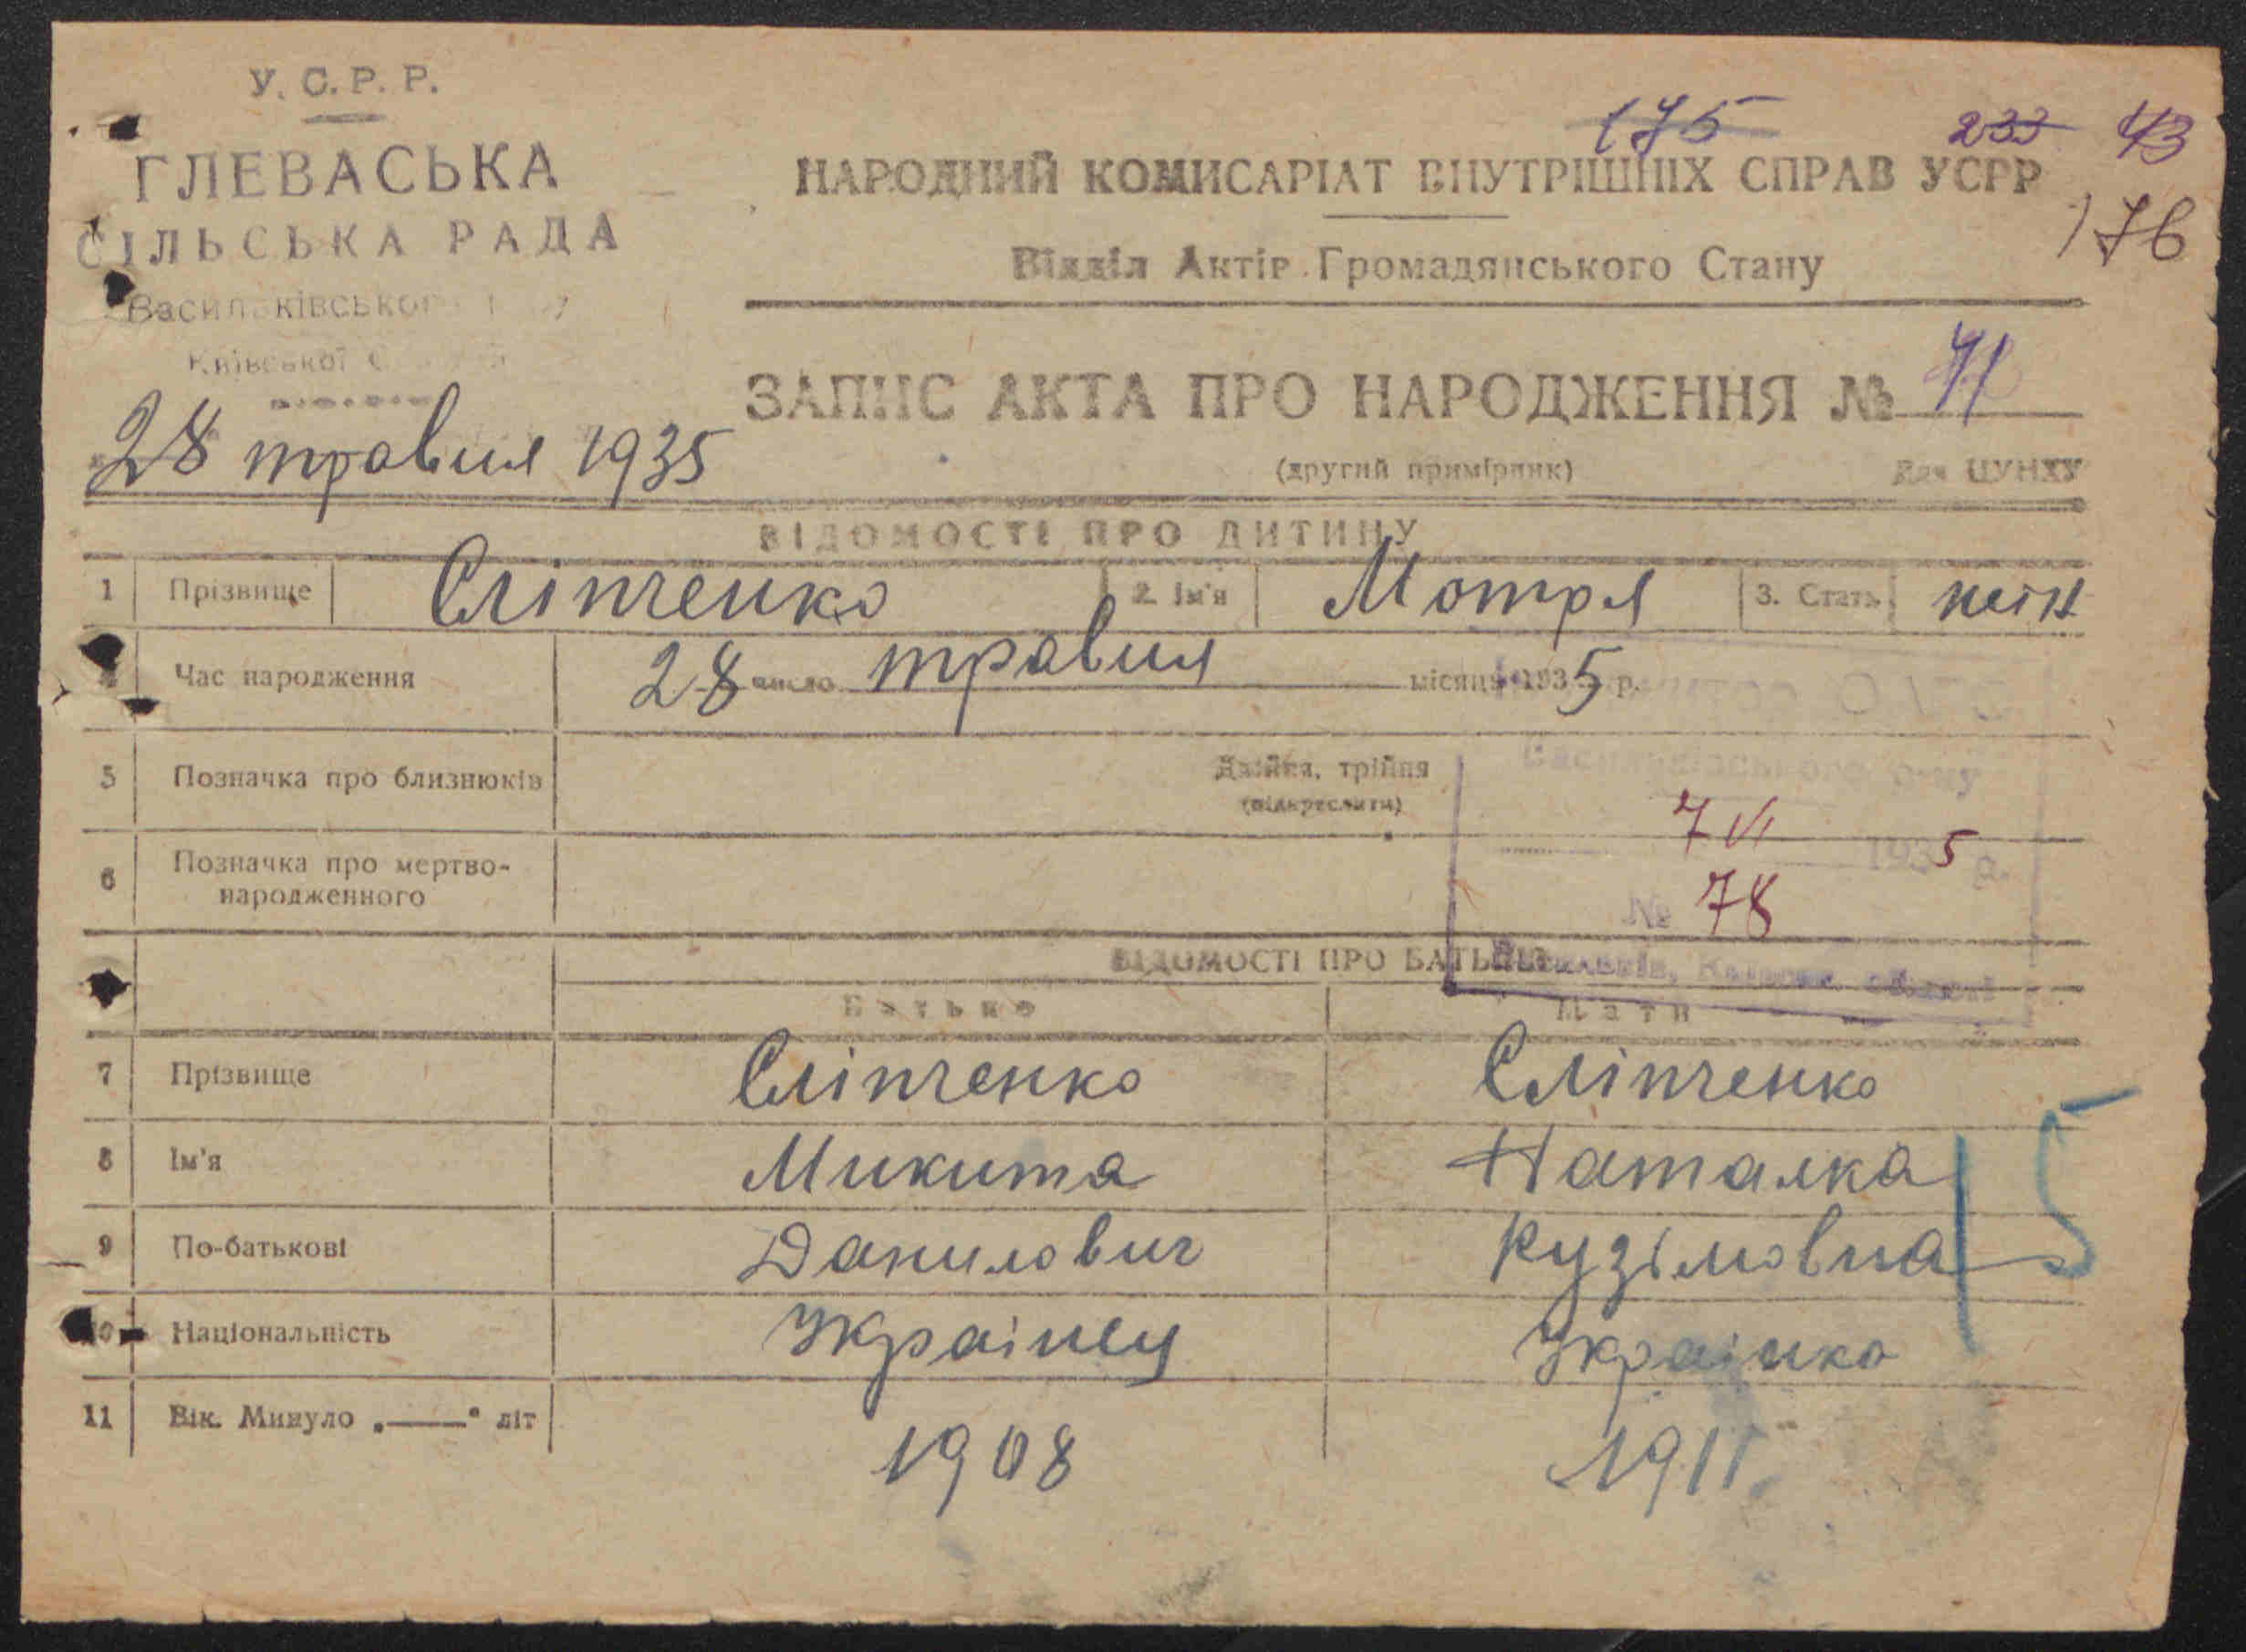 У. С. Р. Р.
ГЛЕВАСЬКА
СІЛЬСЬКА РАДА
Васильківського
Київської
28 травня 1935
175 233 43
НАРОДНИЙ КОМИСАРІАТ ВНУТРІШНІХ СПРАВ УСРР
176
Відділ Актів Громадянського Стану
ЗАПИС АКТА ПРО НАРОДЖЕННЯ №
(другий примірник) Для ЦУНХУ
ВІДОМОСТІ ПРО ДИТИНУ
1 Прізвище Сліпченко 2. Ім'я Мотря 3. Стать
4 Час народження 28 число травня місяця 1935 р.
5 Позначка про близнюків Двійня, трійня
(підкреслити)
Васильківського р-ну
7 VI 1935 р.
6 Позначка про мертво-
народженного
№ 78
ВІДОМОСТІ ПРО БАТЬКІВ
Васильків, Київськ. області
Батько Мати
7 Прізвище Сліпченко Сліпченко
8 Ім'я Микита Наталка
9 По-батькові Данилович Кузьмовна
15
10 Національність Украінец Украінка
11 Вік. Минуло „——“ літ 1908 1911